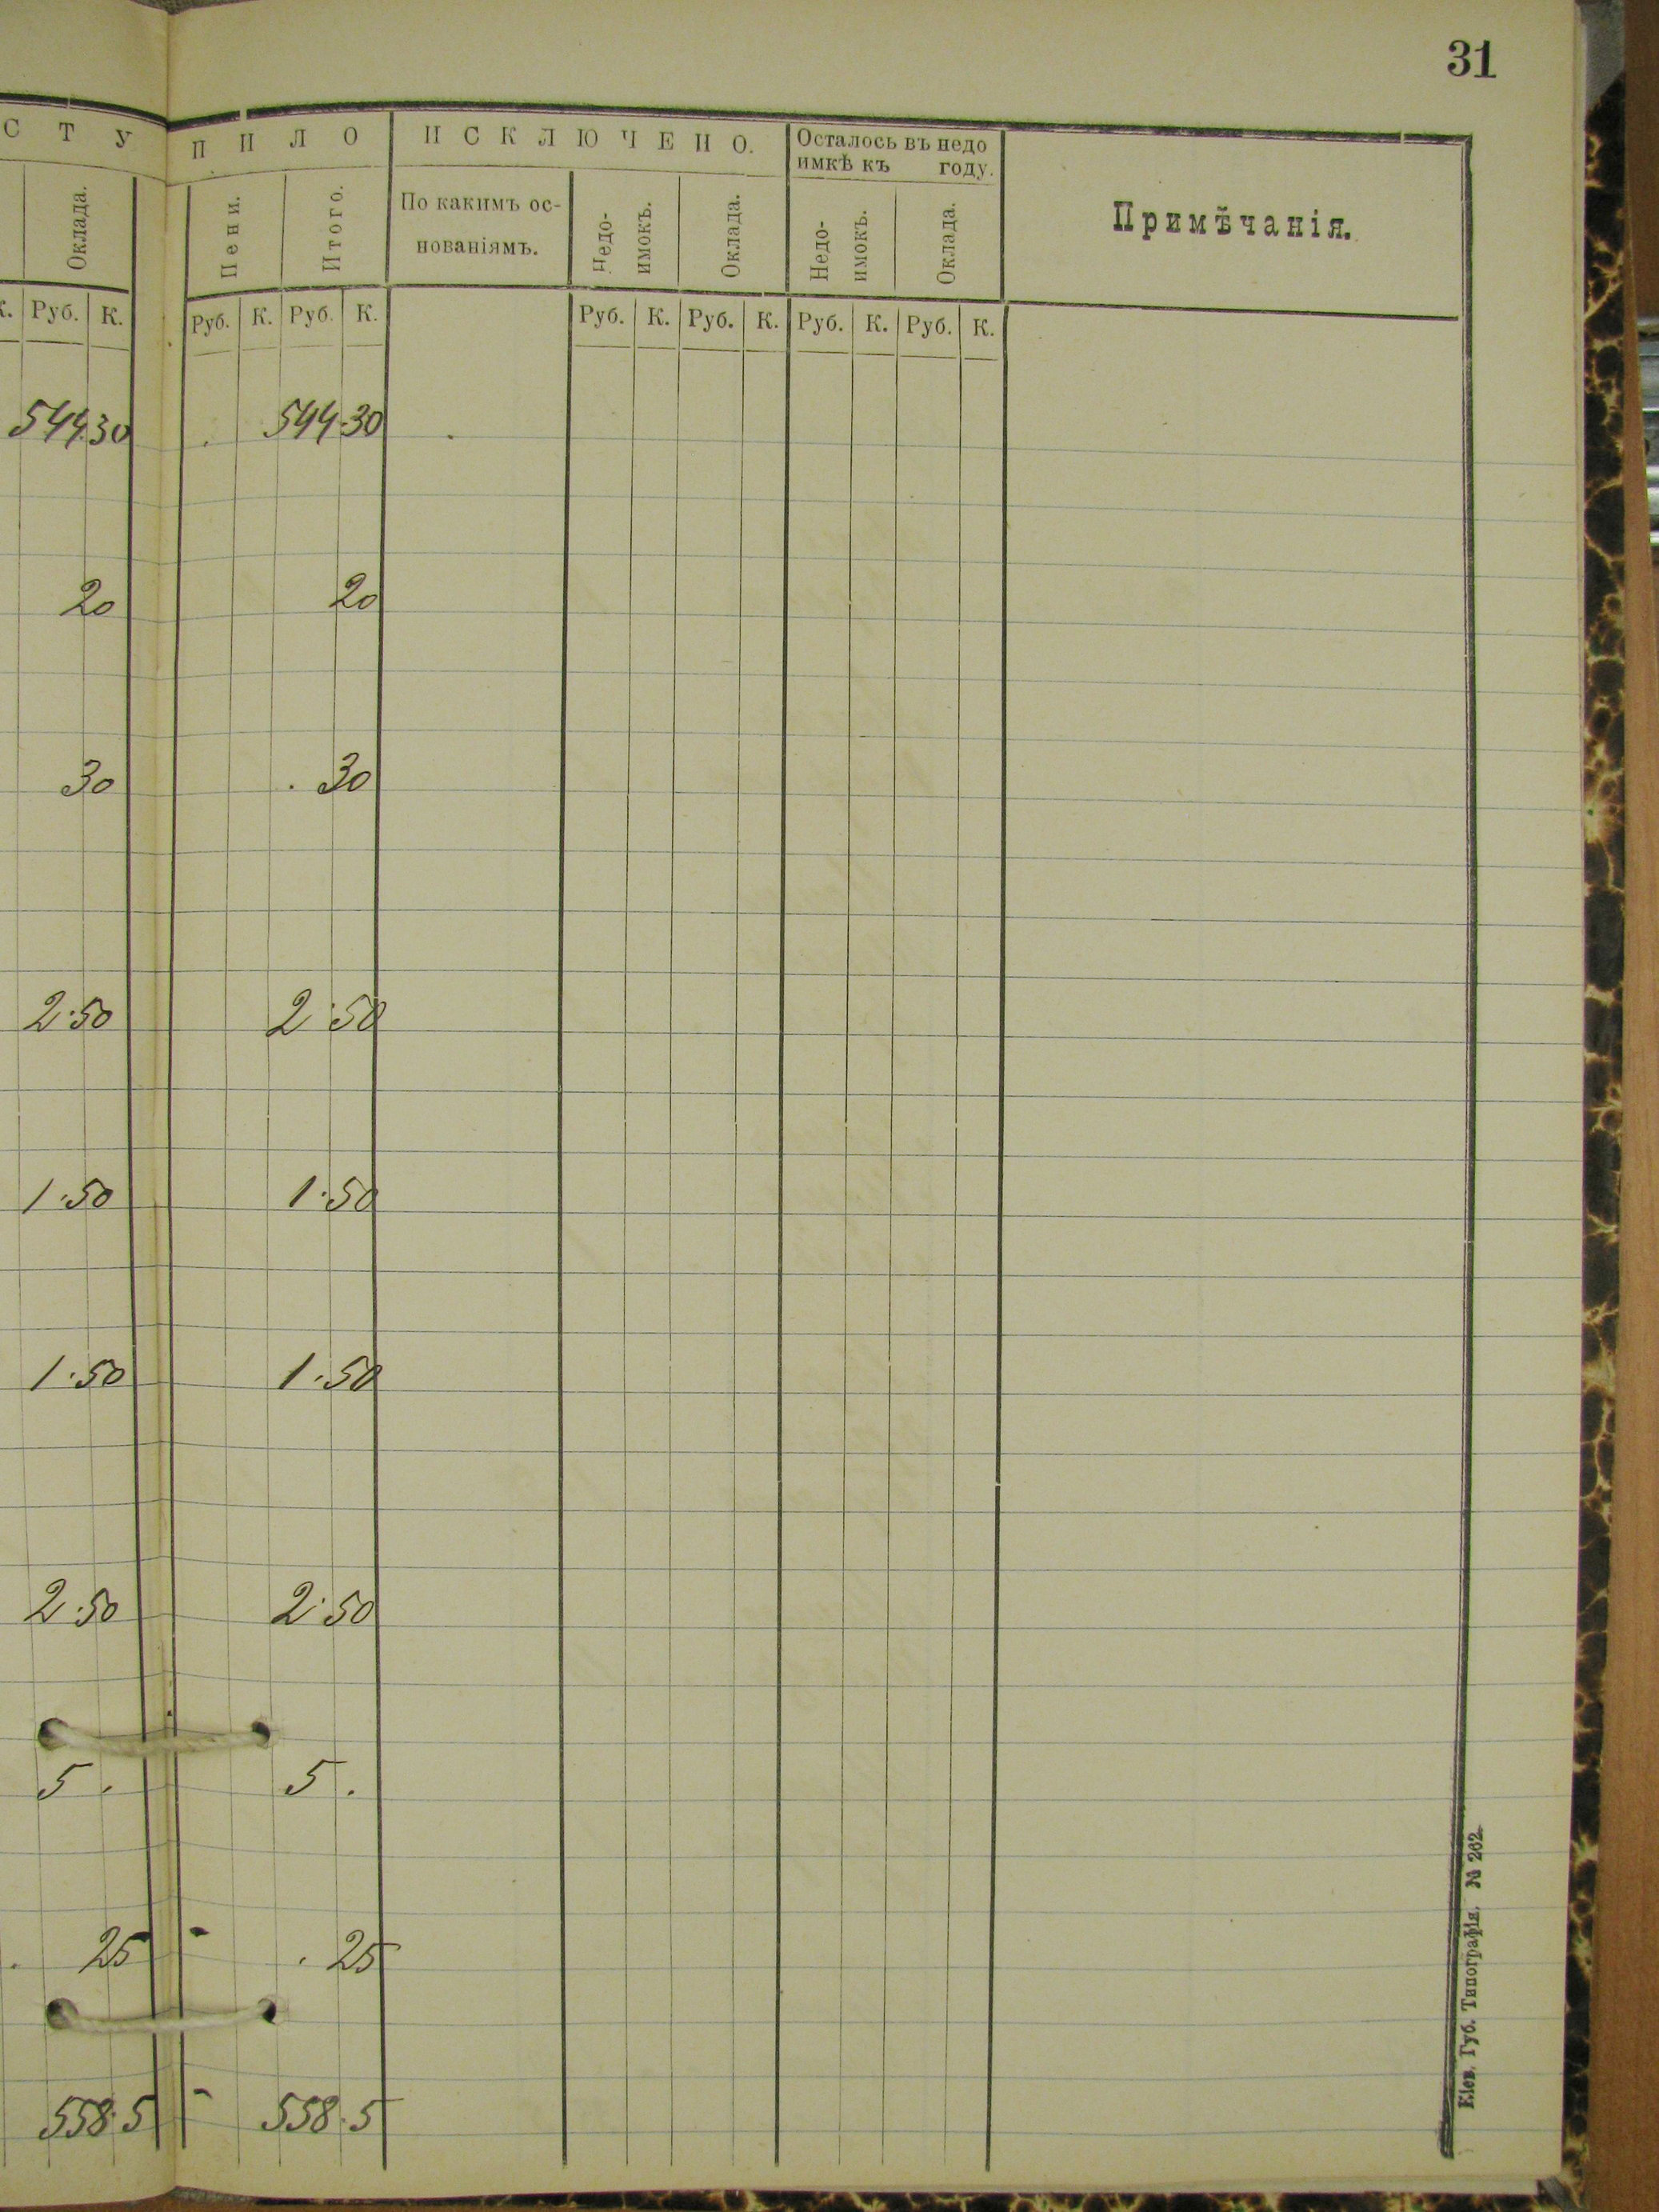 31
С Т У П И Л О И С К Л Ю Ч Е Н О. Осталось въ недо
имкѣ къ году.
Оклада. Пени. Итого. По какимъ ос-
нованіямъ. Недо-
имокъ. Оклада. Недо-
имокъ. Оклада. Примѣчанія.
К. Руб. К. Руб. К. Руб. К. Руб. К. Руб. К. Руб. К. Руб. К.
544.30 . 544.30 .
20 20
30 . 30
2.50 2.50
1.50 1.50
1.50 1.50
2.50 2.50
5 . 5 .
. 25 - . 25
558.5 - 558.5
Кіев. Губ. Типографія. № 262